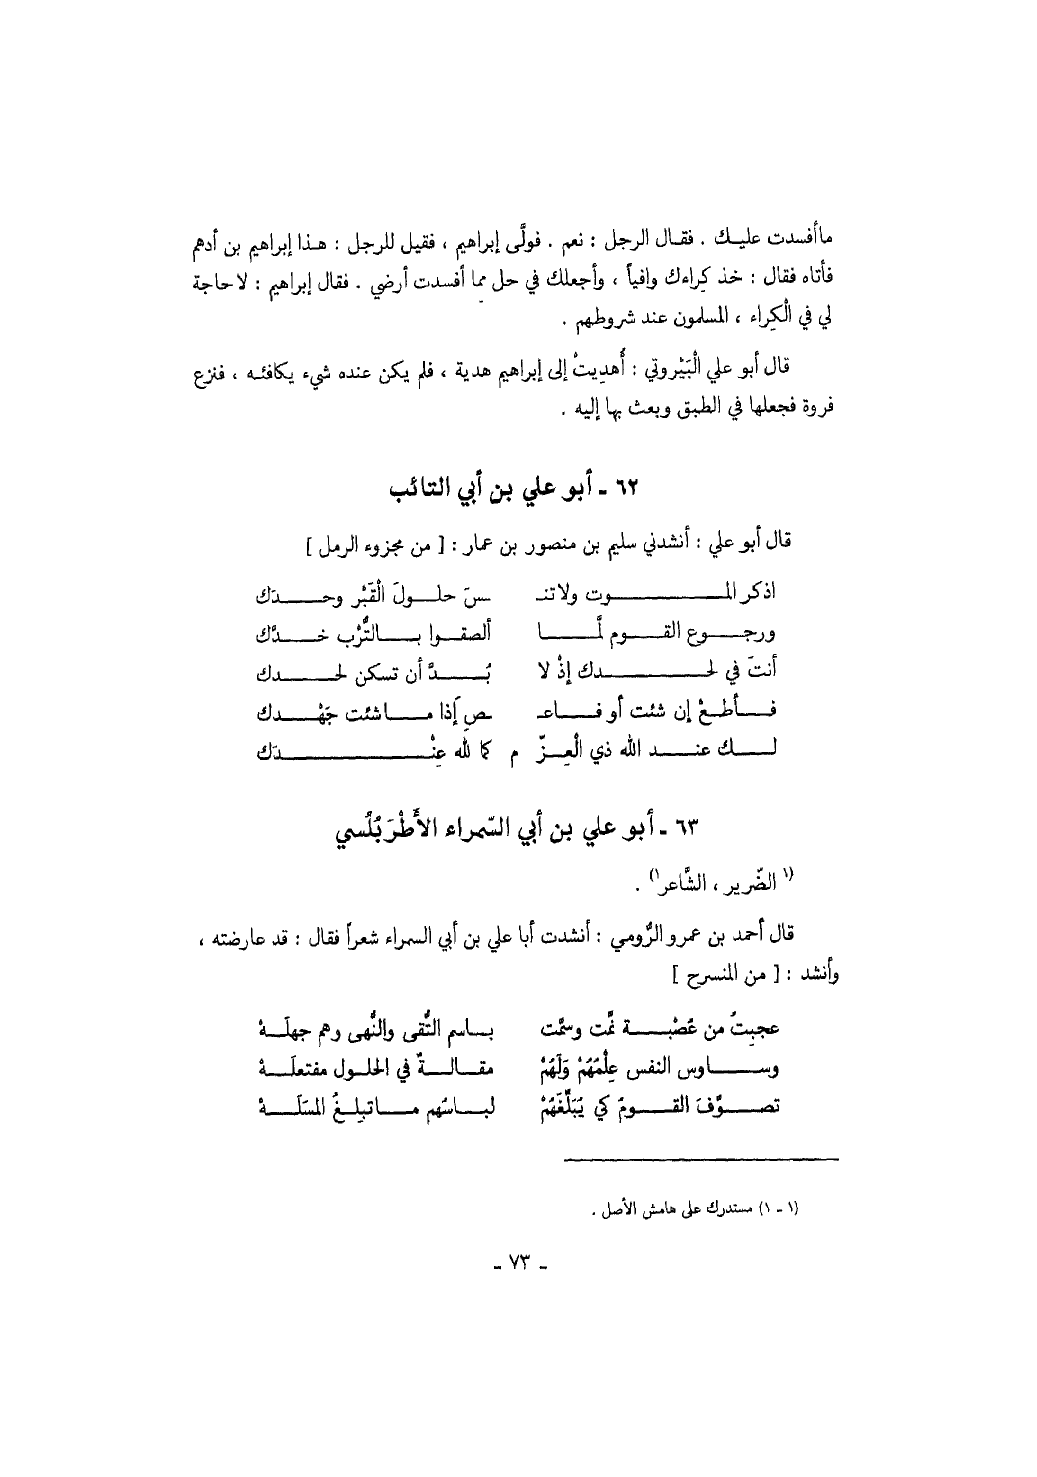 ماأفسدت عليك . فقال الرجل : نعم . فولَّى إبراهيم ، فقيل للرجل : هذا إبراهيم بن أدهم
فأتاه فقال : خذ كِراءك وافياً ، وأجعلك في حل مما أفسدت أرضي . فقال إبراهيم : لاحاجة
لي في الْكِراء ، المسلمون عند شروطهم .
قال أبو علي الْبَيْروتي : أُهديتْ إلى إبراهيم هدية ، فلم يكن عنده شيء يكافئه ، فنزع
فروة فجعلها في الطبق وبعث بها إليه .
٦٢ ـ أبو علي بن أبي التائب
قال أبو علي : أنشدني سليم بن منصور بن عمار : [ من مجزوء الرمل ]
اذكر الموت ولاتنـ ـسَ حلولَ الْقَبْر وحدَك
ورجوع القوم لمَّا ألصقوا بالتُّرْب خدَّك
أنتَ في لحدك إذْ لا بُدَّ أن تسكن لحدك
فأطعْ إن شئت أو فاعـ ـصِ إذا ماشئت جَهْدك
لك عند الله ذي الْعِزّ م كما لله عِنْدَك
٦٣ ـ أبو علي بن أبي السّمراء الأَطْرَبُلُسي
(١ الضّرير ، الشَّاعر١) .
قال أحمد بن عمرو الرُّومي : أنشدت أبا علي بن أبي السمراء شعراً فقال : قد عارضته ،
وأنشد : [ من المنسرح ]
عجبتُ من عُصْبة نمَّت وسمَّت باسم التُّقى والنُّهى وهم جهلَهْ
وساوس النفس عِلْمُهُمْ وَلَهُمْ مقالةٌ في الحلول مفتعلَهْ
تصوَّفَ القومُ كي يُبَلِّغَهُمْ لباسُهم ماتبلِغُ المسَلَهْ
(١ ـ ١) مستدرك على هامش الأصل .
ـ ٧٣ ـ